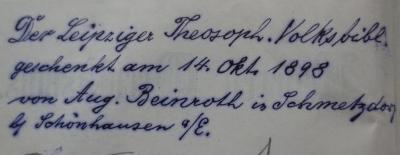 Der Leipziger Theosoph. Volksbibl.
geschenkt am 14. Okt. 1898
von Aug. Beinroth in Schmetzdorf
b/ Schönhausen a/E.